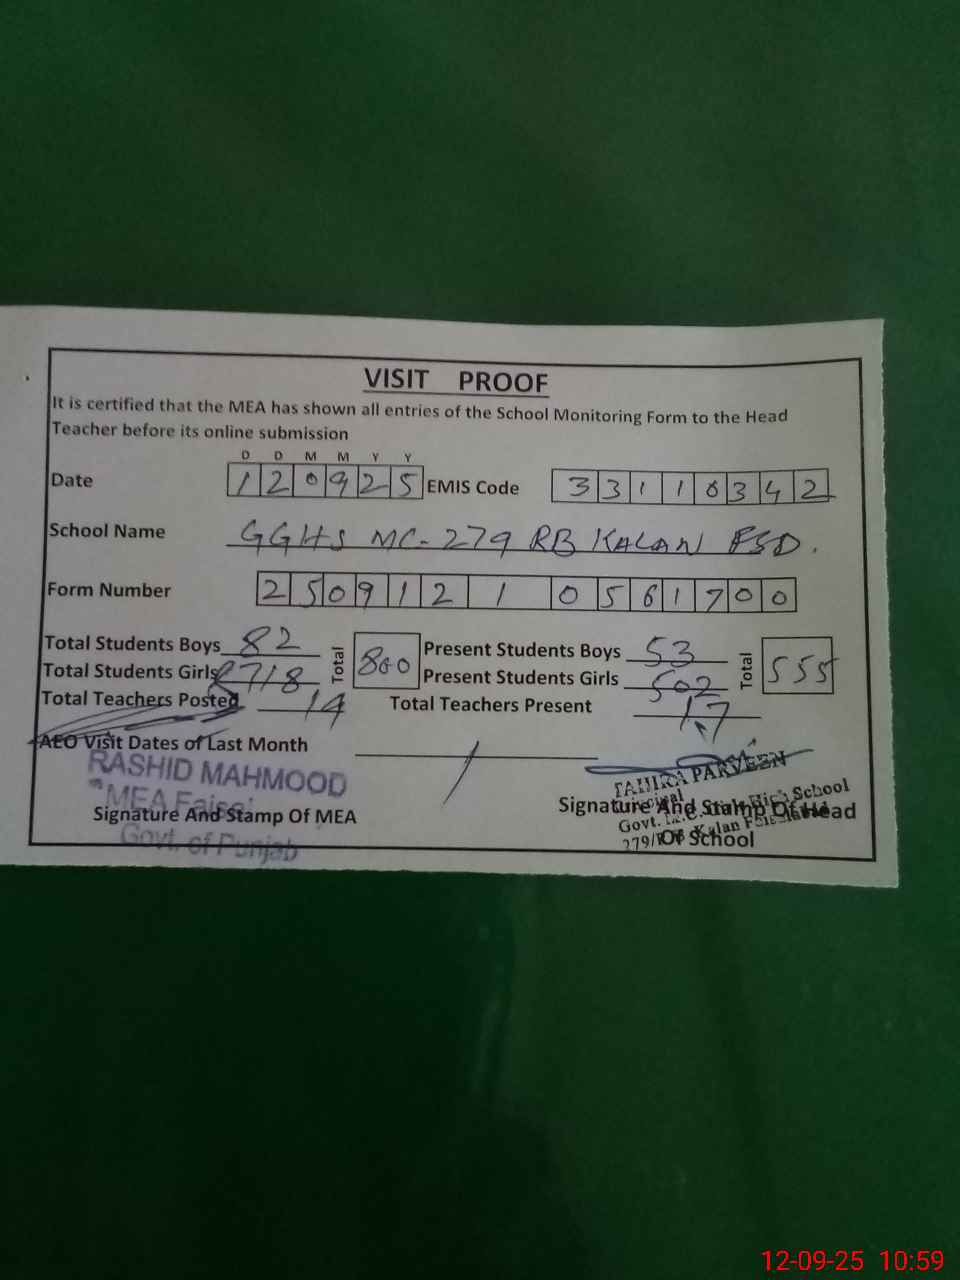 VISIT PROOF
It is certified that the MEA has shown all entries of the School Monitoring Form to the Head
Teacher before its online submission
D D M M Y Y
Date 1 2 0 9 2 5 EMIS Code 3 3 1 1 0 3 4 2
School Name GGHS MC-279 RB KALAN FSD.
Form Number 2 5 0 9 1 2 1 0 5 6 1 7 0 0
Total Students Boys 82 Total 800 Present Students Boys 53 Total 555
Total Students Girls 718 Present Students Girls 502
Total Teachers Posted 14 Total Teachers Present 17
AEO Visit Dates of Last Month /
RASHID MAHMOOD
MEA
Signature And Stamp Of MEA
Govt. of Punjab
TAHIRA PARVEEN
Signature And Stamp Of Head
Of School
High School
Govt.
279/ Kalan
12-09-25 10:59